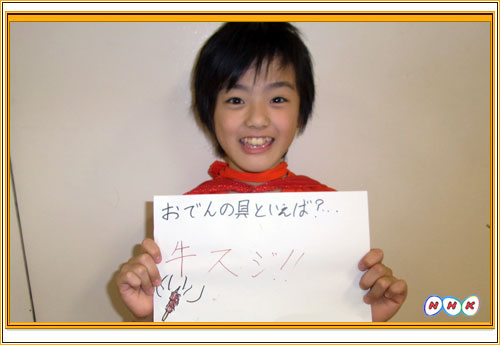 おでんの具といえば?...
牛スジ!!
NHK